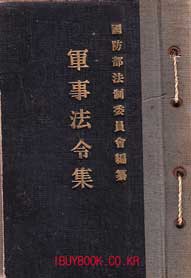 國防部法制委員會編纂
軍事法令集
IBUYBOOK.CO.KR